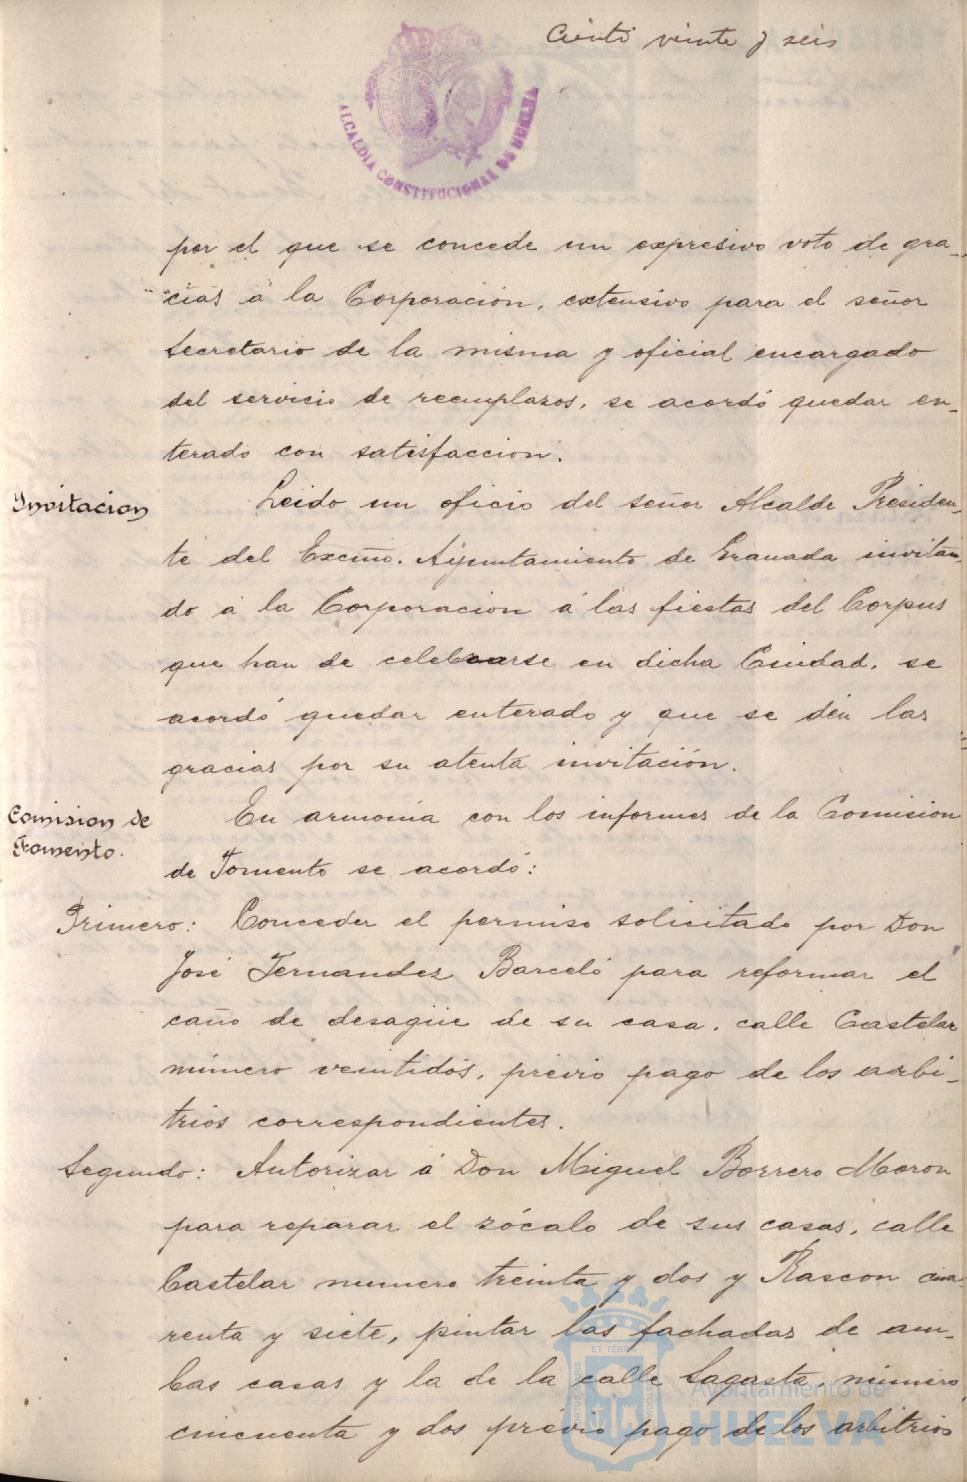 Ciento veinte y seis
ALCALDIA CONSTITUCIONAL DE HUELVA
por el que se concede un expresivo voto de gra-
cias á la Corporación, extensivo para el señor
Secretario de la misma y oficial encargado
del servicio de reemplazos, se acordó quedar en-
terado con satisfaccion.
Invitacion
Leido un oficio del señor Alcalde Presiden-
te del Excmo. Ayuntamiento de Granada invitan-
do á la Corporacion á las fiestas del Corpus
que han de celebrarse en dicha Ciudad, se
acordó quedar enterado y que se den las
gracias por su atenta invitación.
Comision de
Fomento.
En armonia con los informes de la Comision
de Fomento se acordó:
Primero: Conceder el permiso solicitado por Don
José Fernandez Barceló para reformar el
caño de desagüe de su casa, calle Castelar
número veintidós, previo pago de los arbi-
trios correspondientes.
Segundo: Autorizar á Don Miguel Borrero Moron
para reparar el zócalo de sus casas, calle
Castelar numero treinta y dos y Rascon cua-
renta y siete, pintar las fachadas de am-
bas casas y la de la calle Sagasta, número
cincuenta y dos prévio pago de los arbitrios
Ayuntamiento de
HUELVA